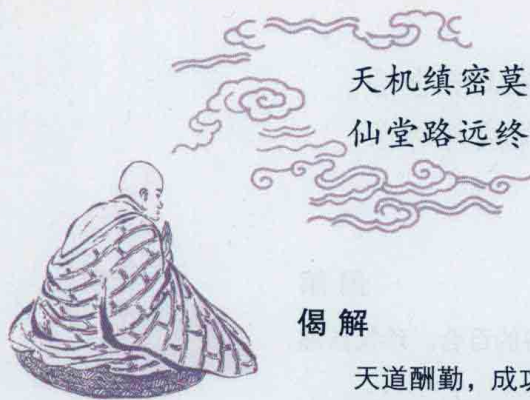 天机缜密莫
仙堂路远终
偈解
天道酬勤，成功